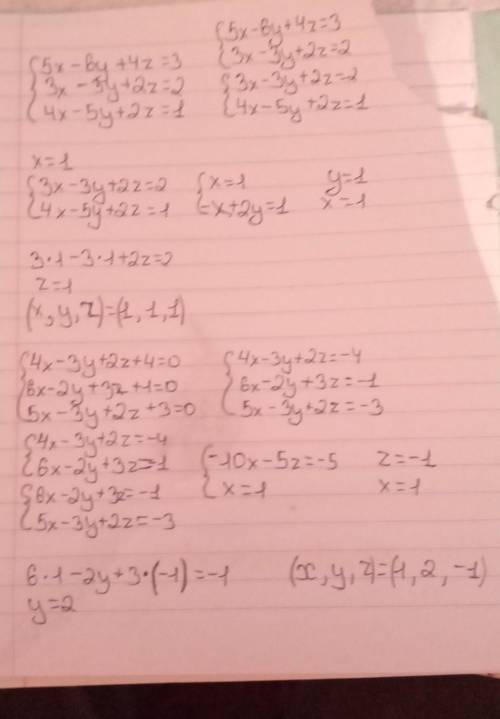 5x-6y+4z=3
3x-3y+2z=2
4x-5y+2z=1
5x-6y+4z=3
3x-3y+2z=2
3x-3y+2z=2
4x-5y+2z=1
x=1
3x-3y+2z=2
4x-5y+2z=1
x=1
-x+2y=1
y=1
x=1
3·1-3·1+2z=2
z=1
(x,y,z)=(1,1,1)
4x-3y+2z+4=0
6x-2y+3z+1=0
5x-3y+2z+3=0
4x-3y+2z=-4
6x-2y+3z=-1
5x-3y+2z=-3
4x-3y+2z=-4
6x-2y+3z=-1
6x-2y+3z=-1
5x-3y+2z=-3
-10x-5z=-5
x=1
z=-1
x=1
6·1-2y+3·(-1)=-1
y=2
(x,y,z)=(1,2,-1)